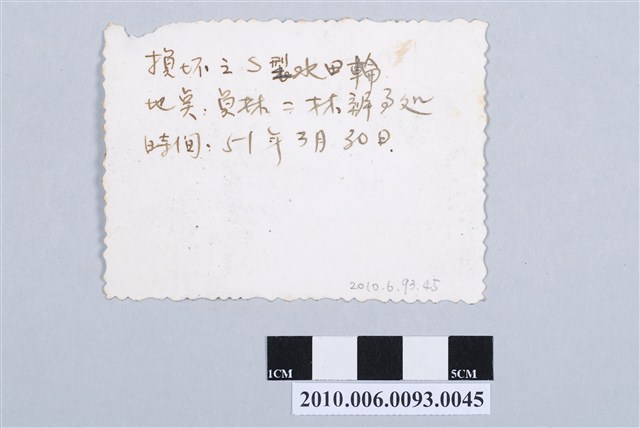 損坏之S型水田輪
地奌:員林二林辦事処
時间:51年3月30日.
2010.6.93.45
1CM
5CM
2010.006.0093.0045